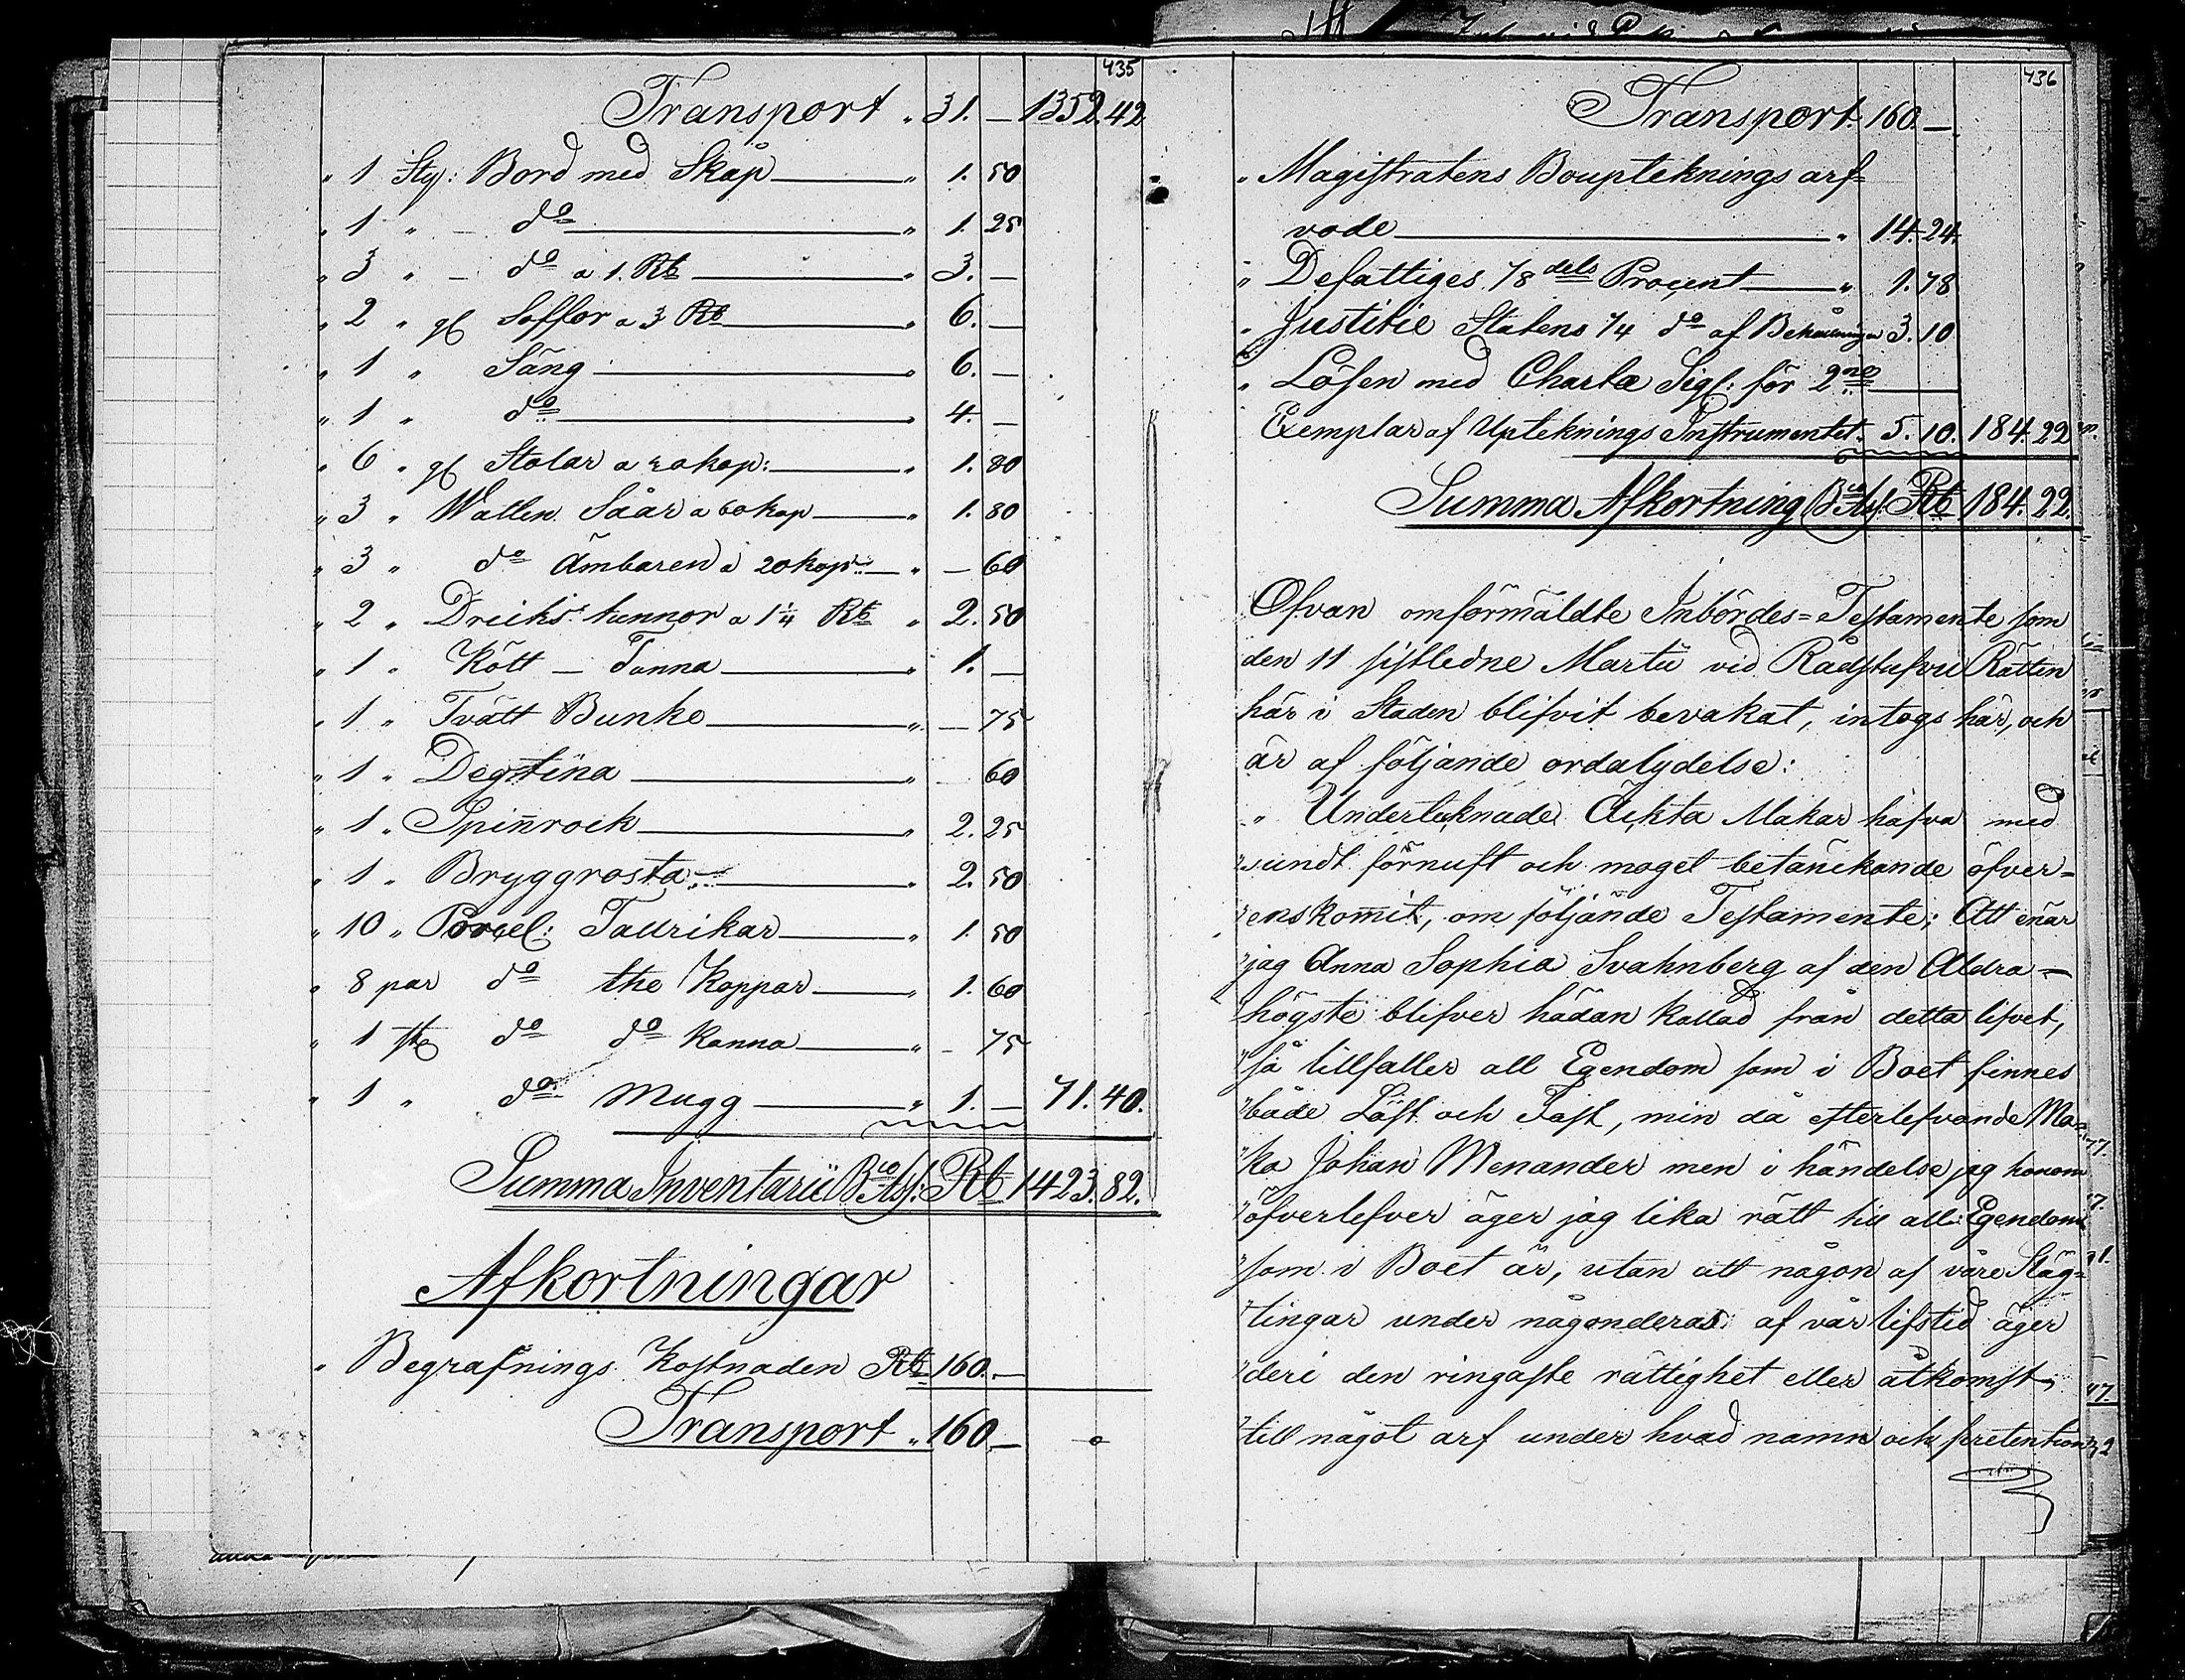 435
Transport „ 31. — 1352.42
„ 1 Sty: Bord med Skåp — „ 1. 50
„ 1 „ — do — „ 1. 25
„ 3 „ — do a 1. Rb — „ 3. —
„ 2 „ gl Soffor a 3 Rb — „ 6. —
„ 1 „ Säng — „ 6. —
„ 1 „ do — „ 4. —
„ 6 „ gl Stolar a 30 kop: — „ 1. 80
„ 3 „ Watten Såar a 60 kop — „ 1. 80
„ 3 „ do Ämbaren a 20 kop: — „ — 60
„ 2 „ Dricks tunnor a 1¼ Rb „ 2. 50
„ 1 „ Kött — Tunna — „ 1. —
„ 1 „ Tvätt Bunke — „ — 75
„ 1 „ Degtina — „ 60
„ 1 „ Spinrock — „ 2. 25
„ 1 „ Bryggrosta — „ 2. 50
„ 10 „ Porcel: Tallrikar — „ 1. 50
„ 8 par do the Koppar — „ 1. 60
„ 1 st do do Kanna — „ — 75
„ 1 „ do Mugg — „ 1. — 71. 40.
Summa Inventarii Bco Ass: Rb 1423. 82.
Afkortningar
„ Begrafnings Kostnaden Rb 160. —
Transport „ 160. —
436
Transport. 160. —
„ Magistratens Boupteknings arf=
vode — „ 14. 24.
„ Defattiges 1/8 dels Procent — „ 1. 78
„ Justitie Statens 1/4 do af Behållningen 3. 10
„ Lösen med Charta Sigl: för 2ne —
Exemplar af Upteknings Instrumentet. 5. 10. 184. 22
Summa Afkortning Bco Ass. Rb 184. 22.
Ofvan omförmäldte Inbördes=Testamente som
den 11 sistledne Martii vid Rådstufvu Rätten
här i Staden blifvit bevakat, intogs här, och
är af följande ordalydelse:
„ Undertecknade Äckta Makar hafva med
„ sundt förnuft och moget betänckande öfver-
„ enskommit, om följande Testamente; Att enär
„ jag Anna Sophia Svahnberg af den Aldra-
„ högste blifver hädan kallad från detta lifvet,
„ så tillfaller all Egendom som i Boet finnes
„ både Löst och Fast, min då efterlefvande Ma=
„ ka Johan Menander men i händelse jag honom
„ öfverlefver äger jag lika rätt till all Egendom
„ som i Boet är, utan att någon af våre Släg=
„ tingar under någonderas af vår lifstid äger
„ deri den ringaste rättighet eller åtkomst,
„ till något arf under hvad namn och pretention